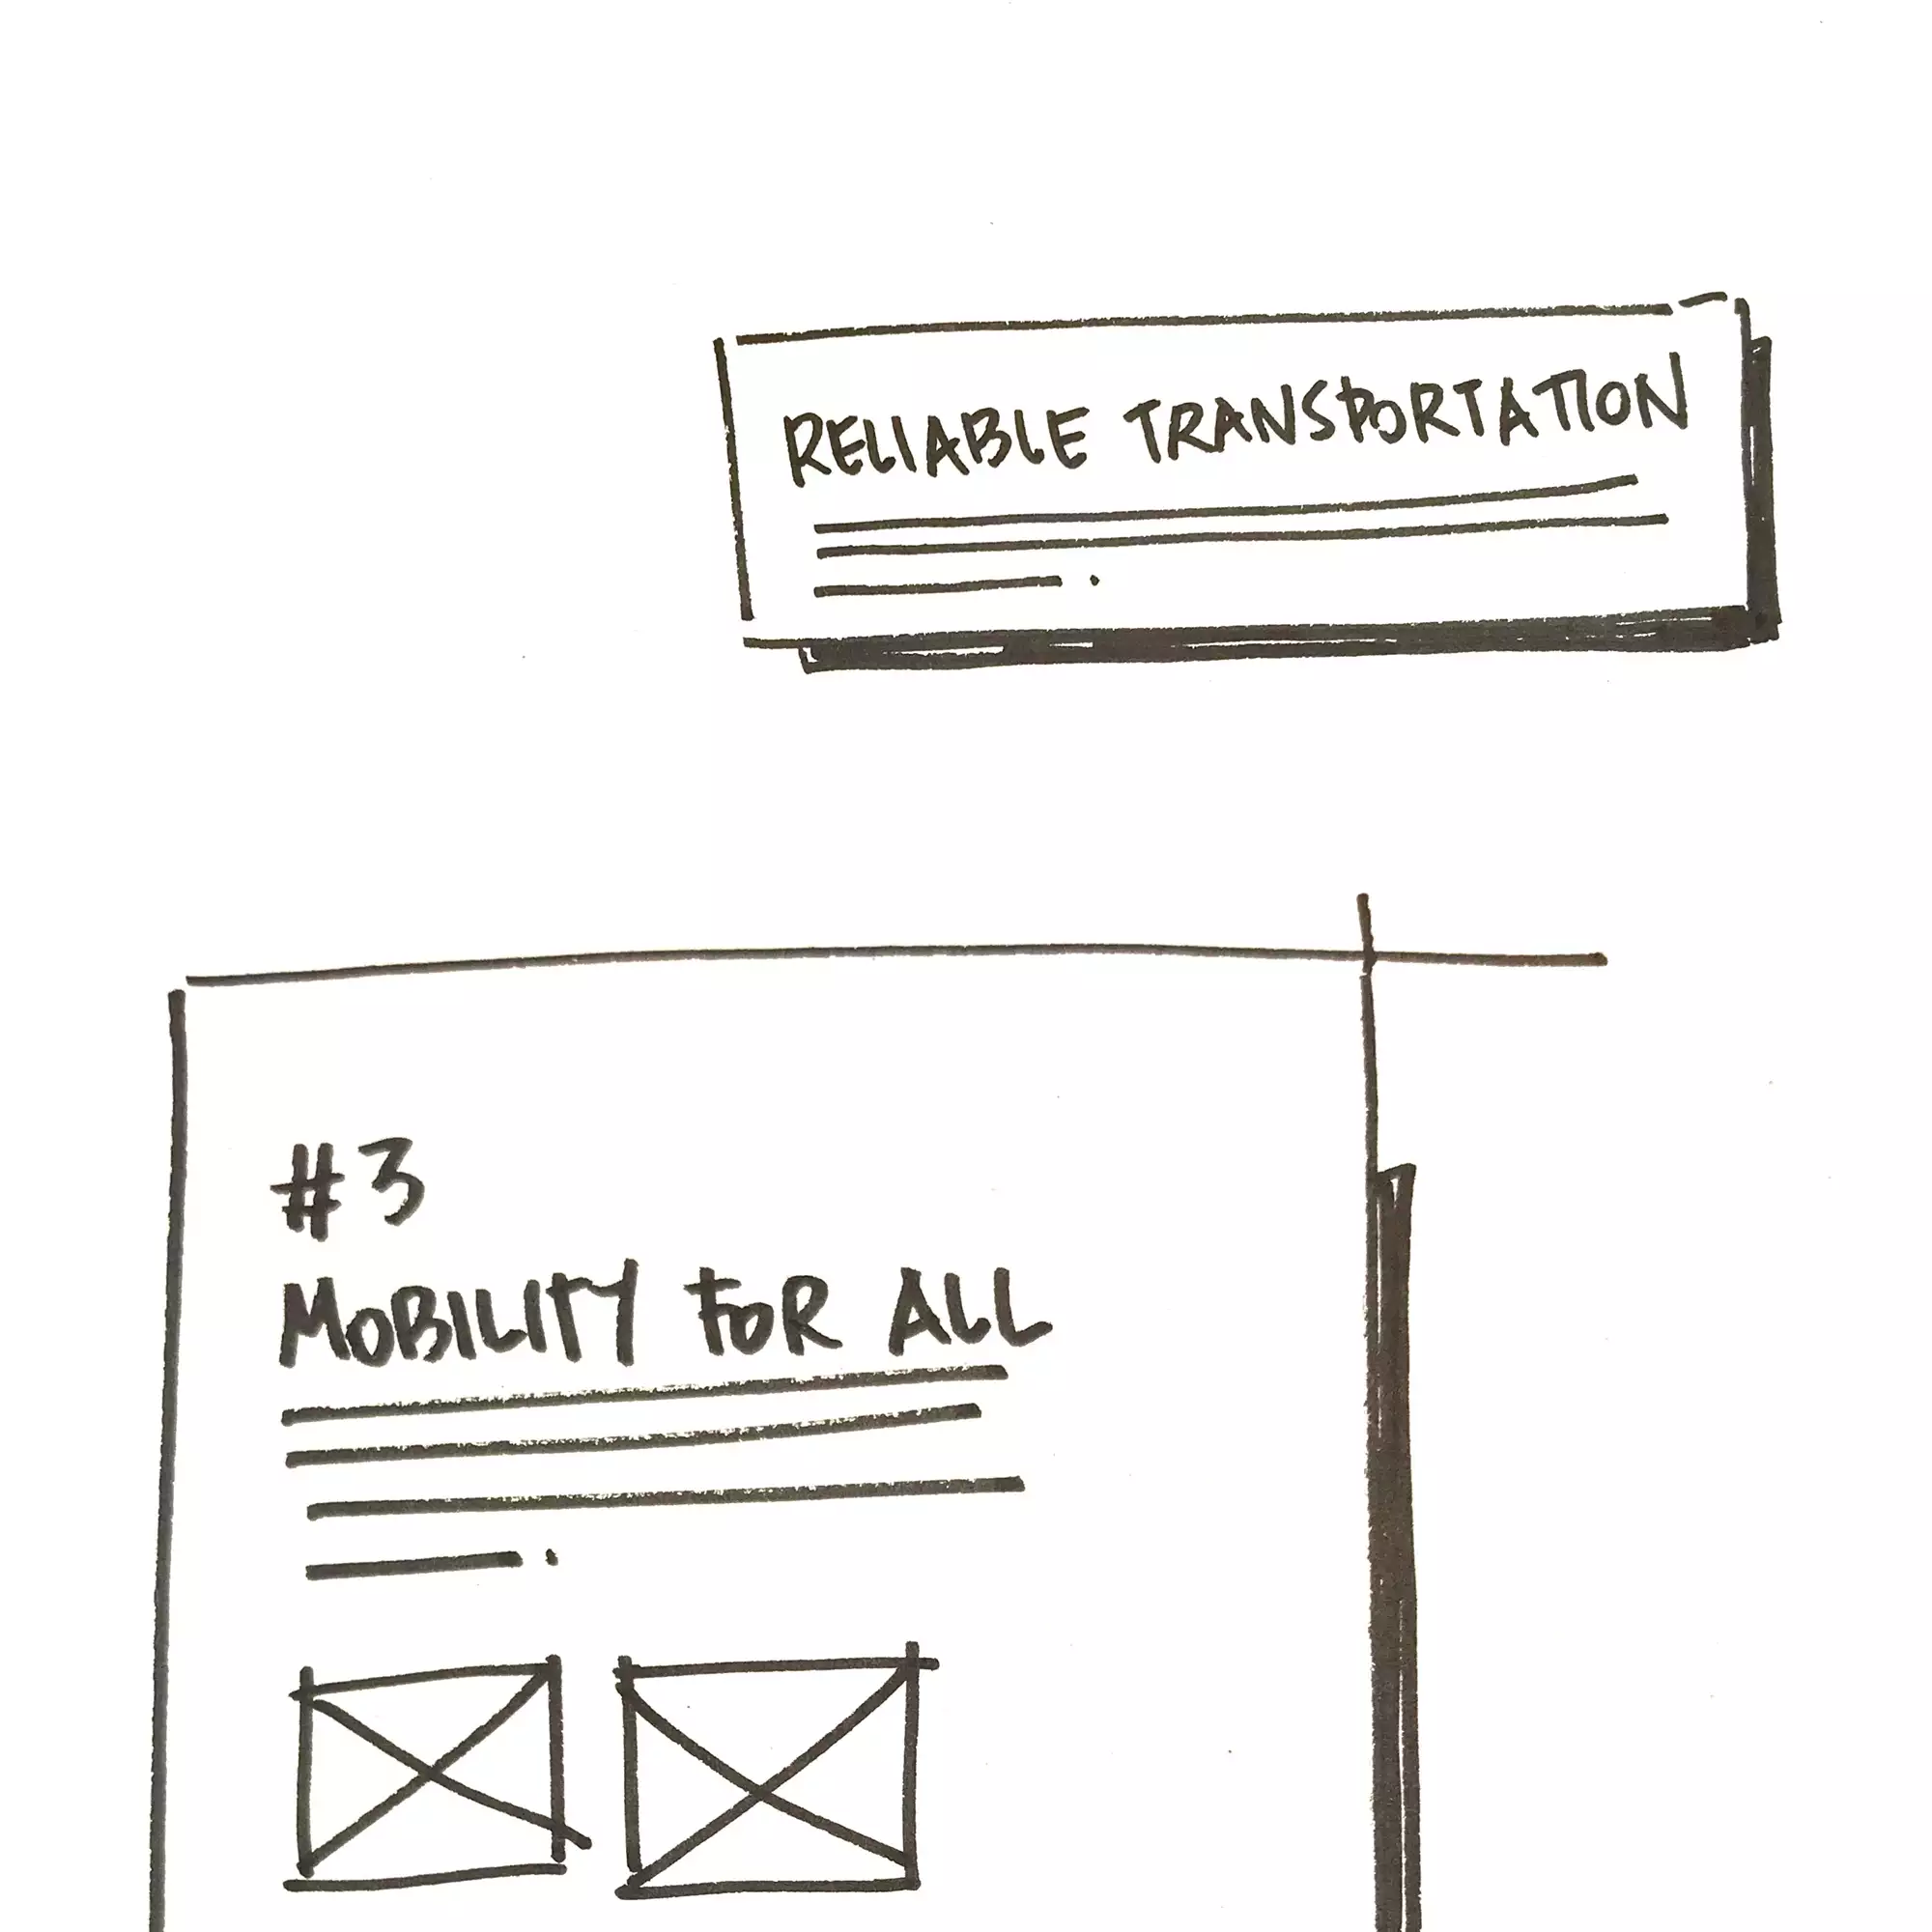 RELIABLE TRANSPORTATION
#3
MOBILITY FOR ALL